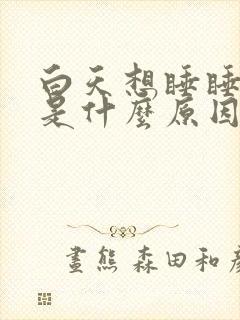 白天想睡睡
是什麼原因
畫熊 森田和彥